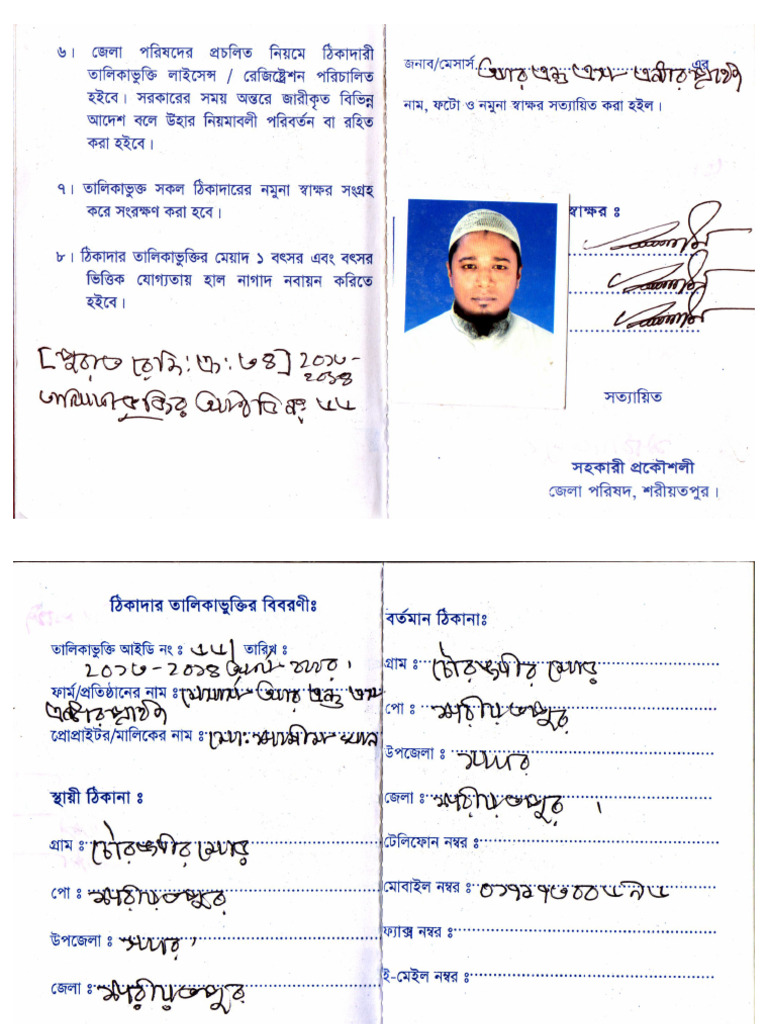 ৬। জেলা পরিষদের প্রচলিত নিয়মে ঠিকাদারী
তালিকাভুক্তি লাইসেন্স / রেজিষ্ট্রেশন পরিচালিত
হইবে। সরকারের সময় অন্তরে জারীকৃত বিভিন্ন
আদেশ বলে উহার নিয়মাবলী পরিবর্তন বা রহিত
করা হইবে।
৭। তালিকাভুক্ত সকল ঠিকাদারের নমুনা স্বাক্ষর সংগ্রহ
করে সংরক্ষণ করা হবে।
৮। ঠিকাদার তালিকাভুক্তির মেয়াদ ১ বৎসর এবং বৎসর
ভিত্তিক যোগ্যতায় হাল নাগাদ নবায়ন করিতে
হইবে।
২০১৩-
২০১৪
জনাব/মেসার্স আর এন্ড এস এন্টারপ্রাইজ এর
নাম, ফটো ও নমুনা স্বাক্ষর সত্যায়িত করা হইল।
স্বাক্ষর ঃ
সত্যায়িত
সহকারী প্রকৌশলী
জেলা পরিষদ, শরীয়তপুর।
ঠিকাদার তালিকাভুক্তির বিবরণীঃ
তালিকাভুক্তি আইডি নং ঃ ৫৫। তারিখ ঃ
২০১৩-২০১৪ অর্থ বছর।
ফার্ম/প্রতিষ্ঠানের নাম ঃ মেসার্স আর এন্ড এস
এন্টারপ্রাইজ
প্রোপ্রাইটর/মালিকের নাম ঃ মোঃ শামীম খান
স্থায়ী ঠিকানা ঃ
গ্রাম ঃ চৌরঙ্গীর মোড়
পো ঃ শরীয়তপুর
উপজেলা ঃ সদর
জেলা ঃ শরীয়তপুর
বর্তমান ঠিকানাঃ
গ্রাম ঃ চৌরঙ্গীর মোড়
পো ঃ শরীয়তপুর
উপজেলা ঃ সদর
জেলা ঃ শরীয়তপুর।
টেলিফোন নম্বর ঃ
মোবাইল নম্বর ঃ
ফ্যাক্স নম্বর ঃ
ই-মেইল নম্বর ঃ